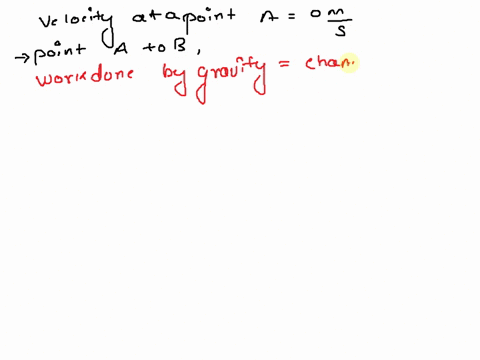 Velocity at a point A = 0 m/s
→ point A to B,
workdone by gravity = chan